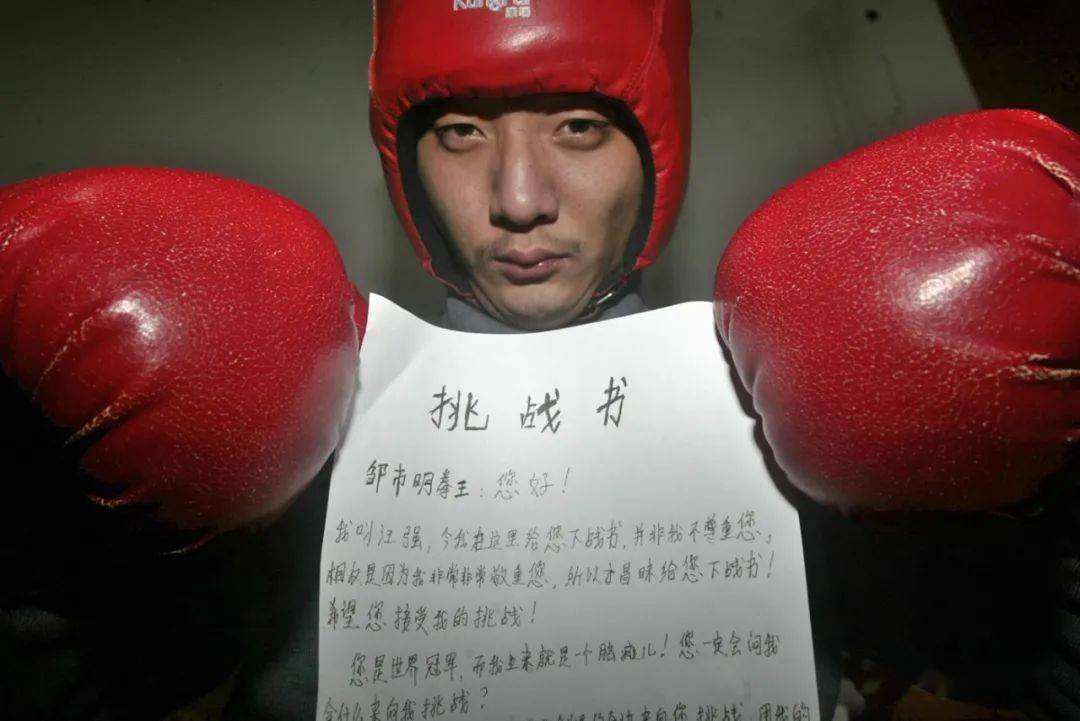 挑战书
邹市明拳王：您好！
我叫江强，今我在这里给您下战书，并非我不尊重您，
相反是因为我非常非常敬重您，所以才冒昧给您下战书！
希望您接受我的挑战！
您是世界冠军，而我生来就是个脑瘫儿！您一定会问我
会什么来向我挑战？
来向您挑战，用我的